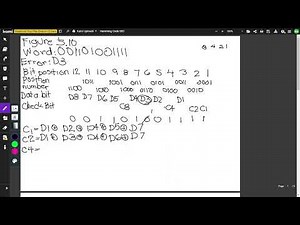 Figure 5.10
Word: 001101001111
8 4 2 1
Error: D3
Bit position 12 11 10 9 8 7 6 5 4 3 2 1
Position number 1100 1011 1010 1001 1000 0111 0110 0101 0100 0011 0010 0001
Data bit D8 D7 D6 D5 D4 D3 D2 D1
Check Bit C8 C4 C2 C1
0 0 1 1 0 1 0 0 1 1 1 1
C1 = D1 ⊕ D2 ⊕ D4 ⊕ D5 ⊕ D7
C2 = D1 ⊕ D3 ⊕ D4 ⊕ D6 ⊕ D7
C4 =